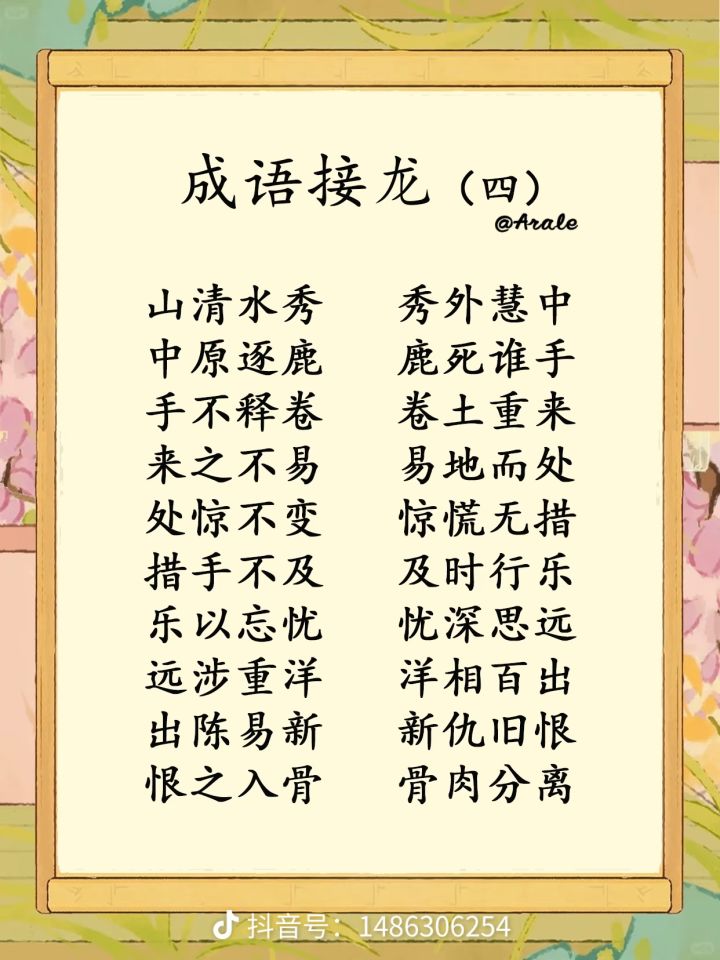 成语接龙（四）
@Arale
山清水秀 秀外慧中
中原逐鹿 鹿死谁手
手不释卷 卷土重来
来之不易 易地而处
处惊不变 惊慌无措
措手不及 及时行乐
乐以忘忧 忧深思远
远涉重洋 洋相百出
出陈易新 新仇旧恨
恨之入骨 骨肉分离
抖音号：1486306254